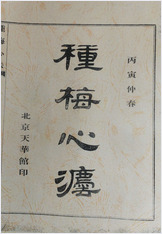 丙寅仲春
種梅心灋
北京天華館印